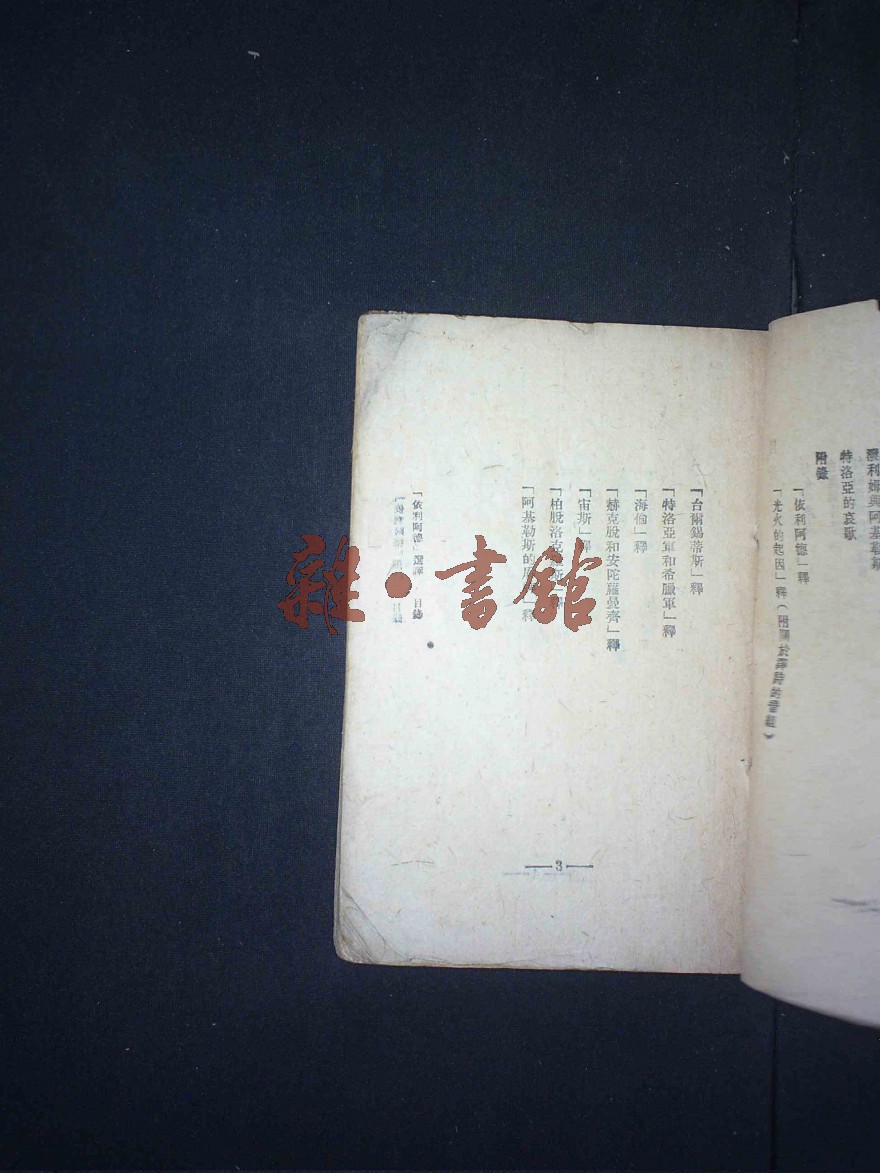 潑利姆與阿基勒斯
特洛亞的哀歌
附錄
「依利阿德」釋
「光火的起因」釋(附關於譯詩的書翰)
「台爾錫蒂斯」釋
「特洛亞軍和希臘軍」釋
「海倫」釋
「赫克脫和安陀羅曼齊」釋
「宙斯」釋
「柏脫洛克
「阿基勒斯的
「依利阿德」選譯 目錄
3
雜·書館